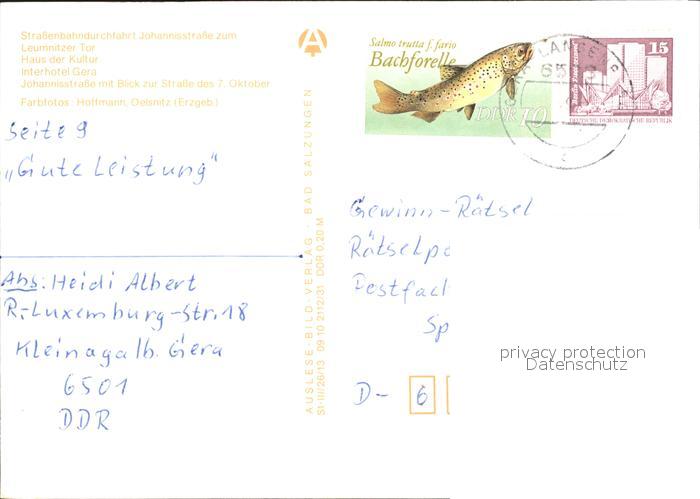 Straßenbahndurchfahrt Johannisstraße zum
Leumnitzer Tor
Haus der Kultur
Interhotel Gera
Johannisstraße mit Blick zur Straße des 7. Oktober
Farbfotos: Hoffmann, Oelsnitz (Erzgeb.)
Seite 9
„Gute Leistung"
Abs: Heidi Albert
R.-Luxemburg-Str. 18
Kleinaga lb. Gera
6501
DDR
AUSLESE-BILD-VERLAG · BAD SALZUNGEN
St-III/26/13 09 10 2112/31 DDR 0,20 M
Salmo trutta f. fario
Bachforelle
DDR 10
15
DEUTSCHE DEMOKRATISCHE REPUBLIK
Gewinn-Rätsel
Rätselpo
Postfach
Sp
D- 6
privacy protection
Datenschutz